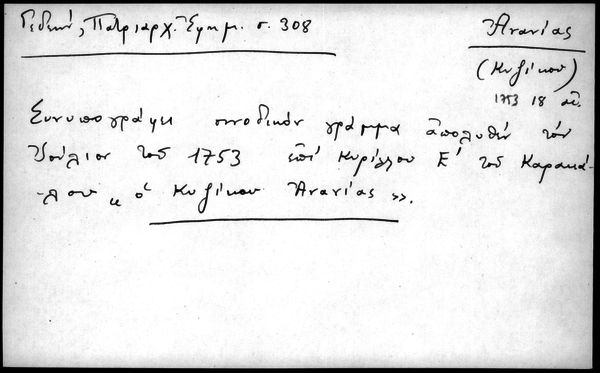 Γεδεών, Πατριαρχ. Ἐφημ. σ. 308
Ἀνανίας
(Κυζίκου)
1753 18 αἰ.
Συνυπογράφει συνοδικὸν γράμμα ἀπολυθὲν τὸν
Ἰούλιον τοῦ 1753 ἐπὶ Κυρίλλου Ε΄ τοῦ Καρακά-
λου « ὁ Κυζίκου Ἀνανίας ».